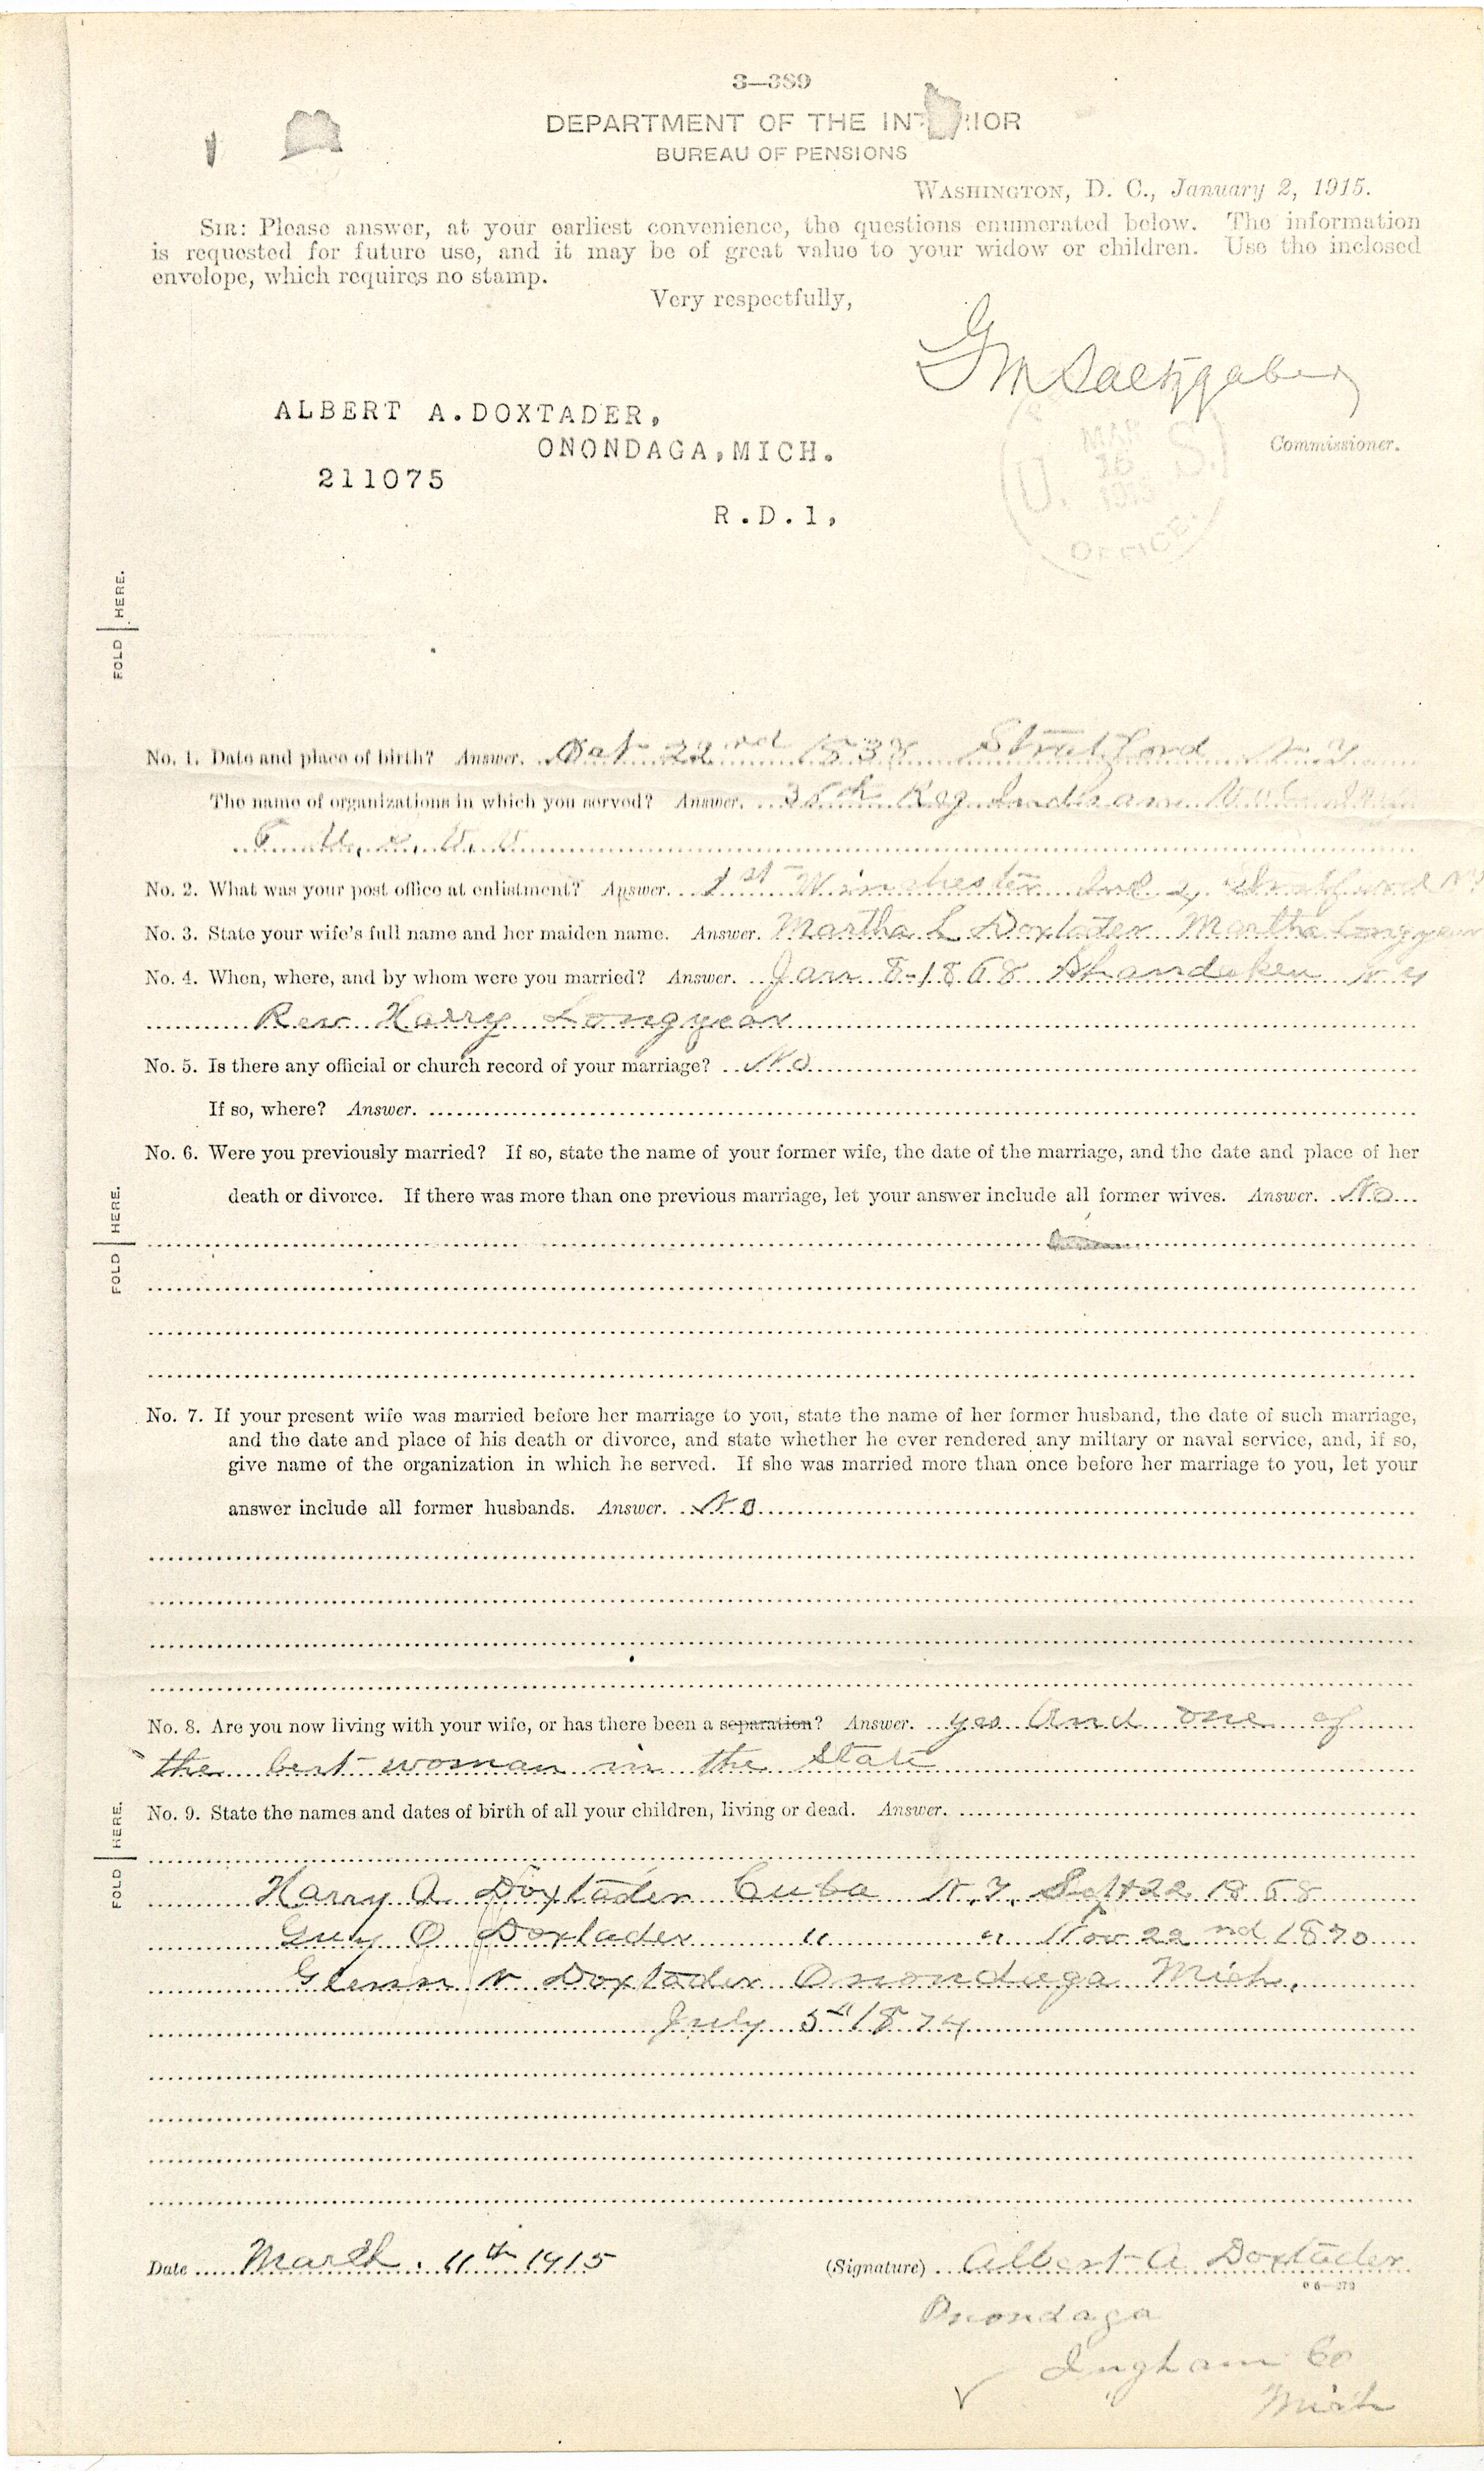 3—389
DEPARTMENT OF THE INTERIOR
BUREAU OF PENSIONS
WASHINGTON, D. C., January 2, 1915.
SIR: Please answer, at your earliest convenience, the questions enumerated below. The information
is requested for future use, and it may be of great value to your widow or children. Use the inclosed
envelope, which requires no stamp.
Very respectfully,
G M Saltzgaber
Commissioner.
ALBERT A. DOXTADER,
ONONDAGA, MICH.
211075
R.D.1,
U. S.
MAR
OFFICE
FOLD HERE.
No. 1. Date and place of birth? Answer. Oct 22nd 1838 Stratford N.Y
The name of organizations in which you served? Answer. Reg Indiana
No. 2. What was your post office at enlistment? Answer. 1st Winchester Ind 2, Stratford NY
No. 3. State your wife's full name and her maiden name. Answer. Martha L Doxtader Martha Longyear
No. 4. When, where, and by whom were you married? Answer. Jan 8-1868 Shandaken N.Y
Rev Harry Longyear
No. 5. Is there any official or church record of your marriage? No
If so, where? Answer.
No. 6. Were you previously married? If so, state the name of your former wife, the date of the marriage, and the date and place of her
death or divorce. If there was more than one previous marriage, let your answer include all former wives. Answer. No
FOLD HERE.
No. 7. If your present wife was married before her marriage to you, state the name of her former husband, the date of such marriage,
and the date and place of his death or divorce, and state whether he ever rendered any miltary or naval service, and, if so,
give name of the organization in which he served. If she was married more than once before her marriage to you, let your
answer include all former husbands. Answer. No
No. 8. Are you now living with your wife, or has there been a separation? Answer. yes And one of
the best woman in the State
No. 9. State the names and dates of birth of all your children, living or dead. Answer.
FOLD HERE.
Harry A. Doxtader Cuba N.Y. Sept 22 1868
Guy O Doxtader " " Nov 22nd 1870
Glenn N Doxtader Onondaga Mich.
July 5th 1874
Date March. 11th 1915
(Signature) Albert A Doxtader
Onondaga
Ingham Co
Mich